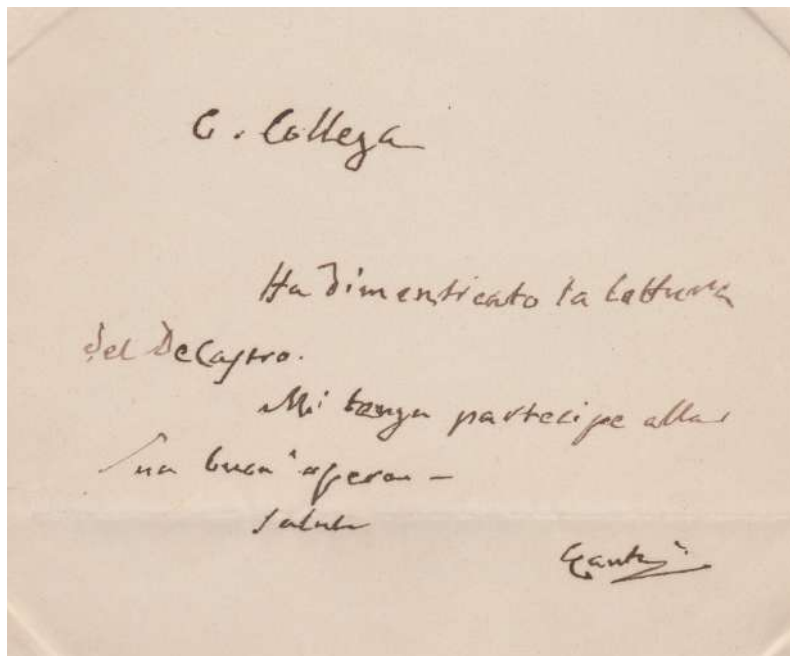 C. Collega
Ha dimenticato la lettura
del De Castro.
Mi tenga partecipe alla
Sua buon'opera —
Salute
CCantù